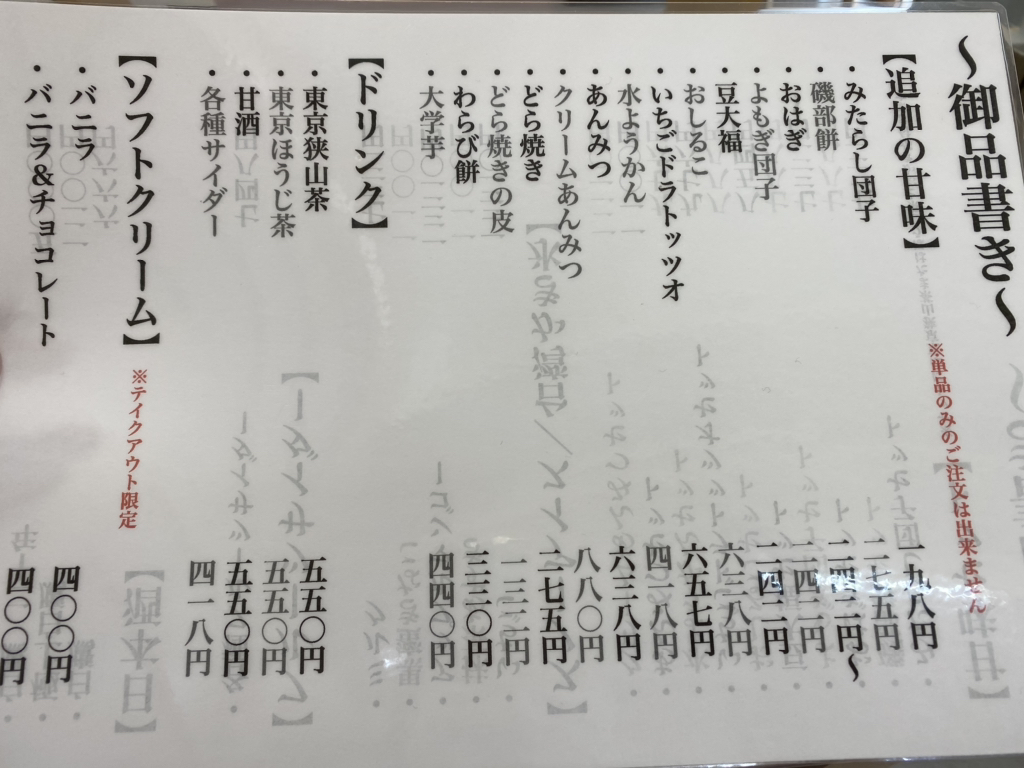 ～御品書き～
【追加の甘味】※単品のみのご注文は出来ません
・みたらし団子 一九八円
・磯部餅 二七五円
・おはぎ 一四三円～
・よもぎ団子 二四二円
・豆大福 二四二円
・おしるこ 六三八円
・いちごドラトッツオ 六五七円
・水ようかん 四一八円
・あんみつ 六三八円
・クリームあんみつ 八八〇円
・どら焼き 二七五円
・どら焼きの皮 一三二円
・わらび餅 三三〇円
・大学芋 四四〇円
【ドリンク】
・東京狭山茶 五五〇円
・東京ほうじ茶 五五〇円
・甘酒 五五〇円
・各種サイダー 四一八円
【ソフトクリーム】※テイクアウト限定
・バニラ 四〇〇円
・バニラ＆チョコレート 四〇〇円